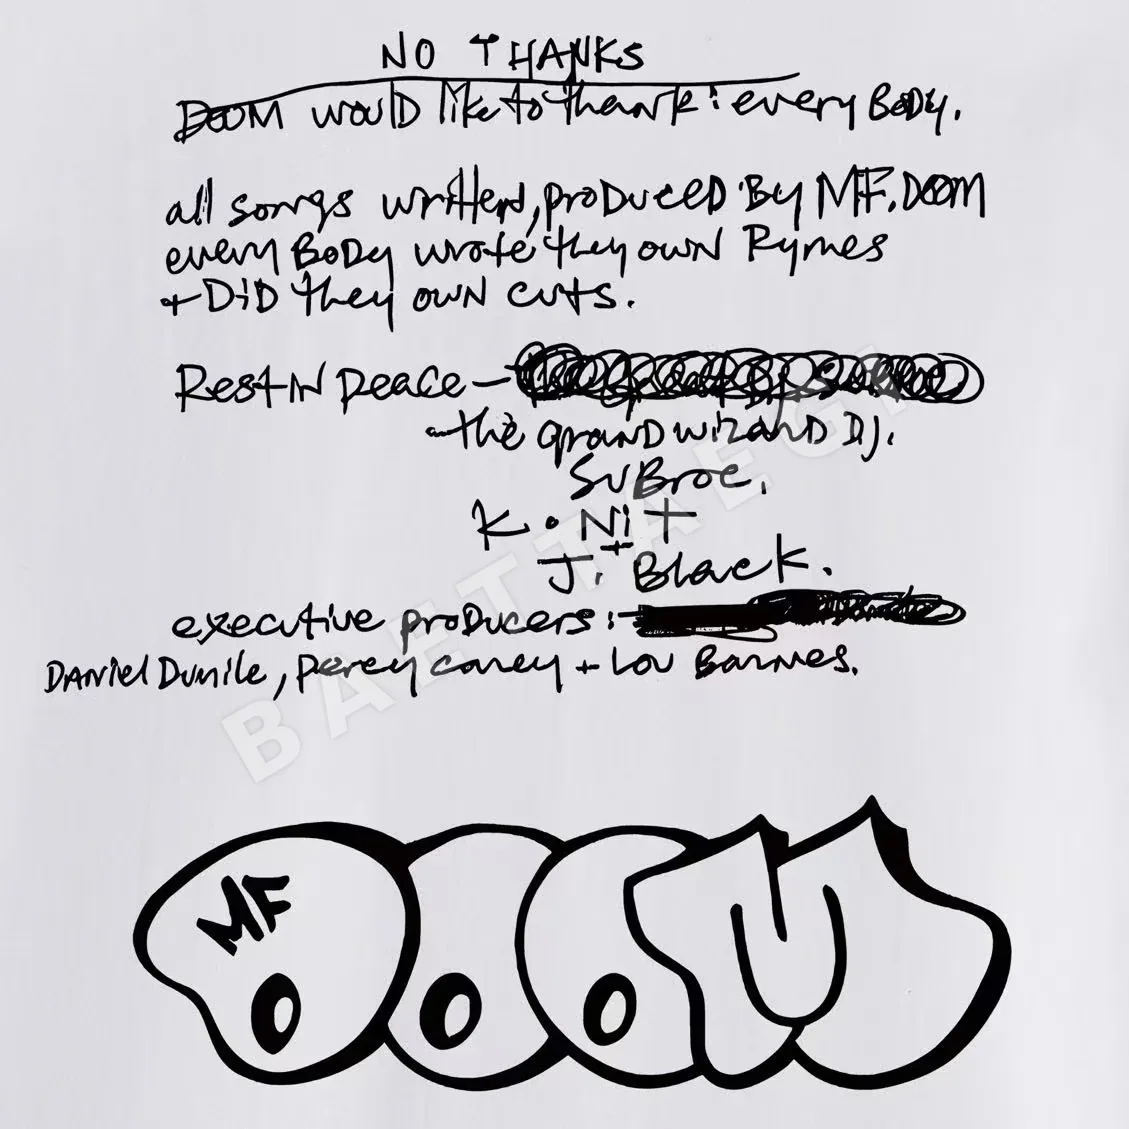 NO THANKS
DOOM WOULD like to thank : every BODY.
all songs written, produced By MF. DOOM
every BODY wrote they own Rymes
+ DiD they own cuts.
Rest iN peace –
- the grand wizard DJ.
SUBroe.
K. Nit
+
J. Black.
executive producers :
Daniel Dumile, percy carey + Lou Barnes.
BAETTAEGI
MF
DOOM